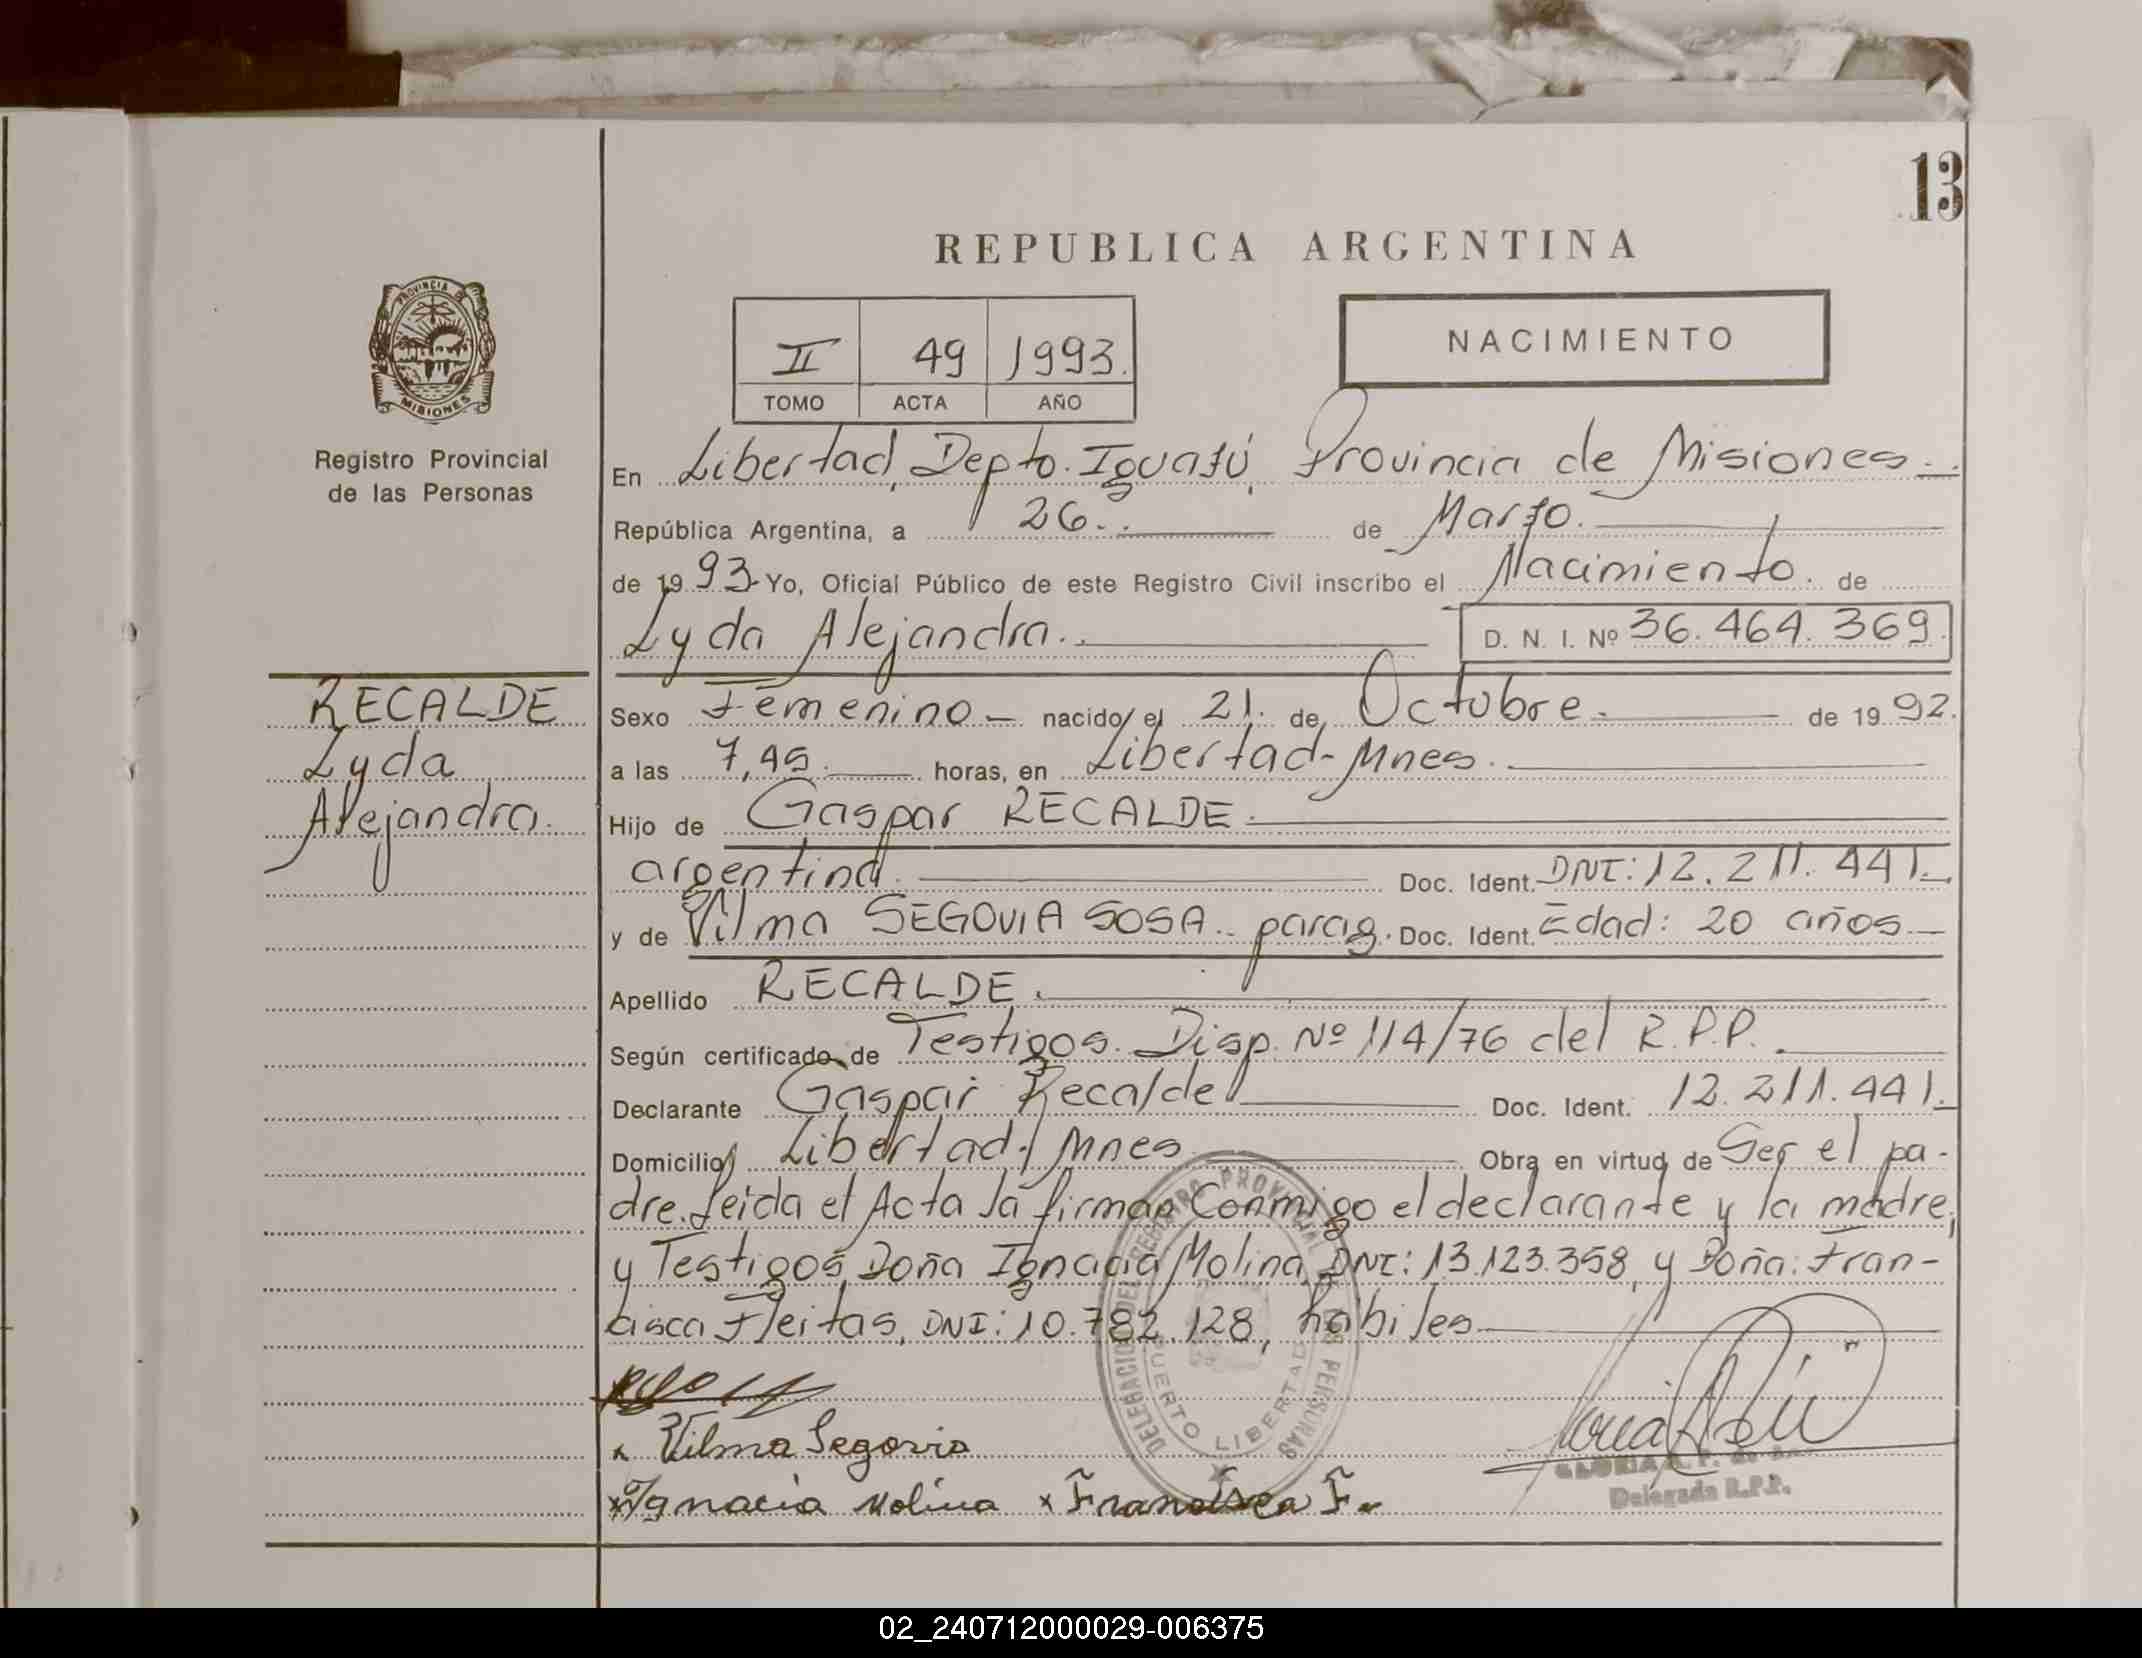 13
REPUBLICA ARGENTINA
PROVINCIA DE
MISIONES
Registro Provincial
de las Personas
II 49 1993.
TOMO ACTA AÑO
NACIMIENTO
En Libertad, Depto. Iguazú, Provincia de Misiones.
República Argentina, a 26. de Marzo.
de 19 93 Yo, Oficial Público de este Registro Civil inscribo el Nacimiento. de
Lyda Alejandra. D. N. I. Nº 36.464.369.
RECALDE
Lyda
Alejandra.
Sexo Femenino nacido el 21. de Octubre. de 19 92.
a las 7,45. horas, en Libertad-Mnes.
Hijo de Gaspar RECALDE.
argentina. Doc. Ident. DNI: 12.211.441.
y de Vilma SEGOVIA SOSA. parag. Doc. Ident. Edad: 20 años
Apellido RECALDE.
Según certificado de Testigos. Disp. Nº 114/76 del R.P.P.
Declarante Gaspar Recalde Doc. Ident. 12.211.441.
Domicilio Libertad-Mnes Obra en virtud de Ser el pa-
dre. Leida el Acta la firman Conmigo el declarante y la madre,
y Testigos, Doña Ignacia Molina, DNI: 13.123.358, y Doña: Fran-
cisca Fleitas, DNI: 10.782.128, habiles
DELEGACION DEL REGISTRO PROVINCIAL DE LAS PERSONAS
PUERTO LIBERTAD
x Vilma Segovia
x Ignacia Molina x Francisca F.
GLORIA
Delegada R.P.P.
02_240712000029-006375